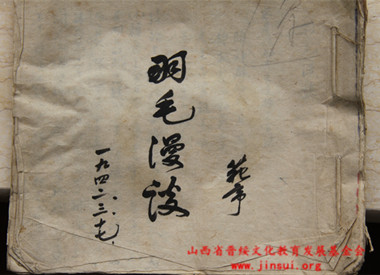 羽毛漫谈
一九四二.三.七.
山西省晋绥文化教育发展基金会
www.jinsui.org